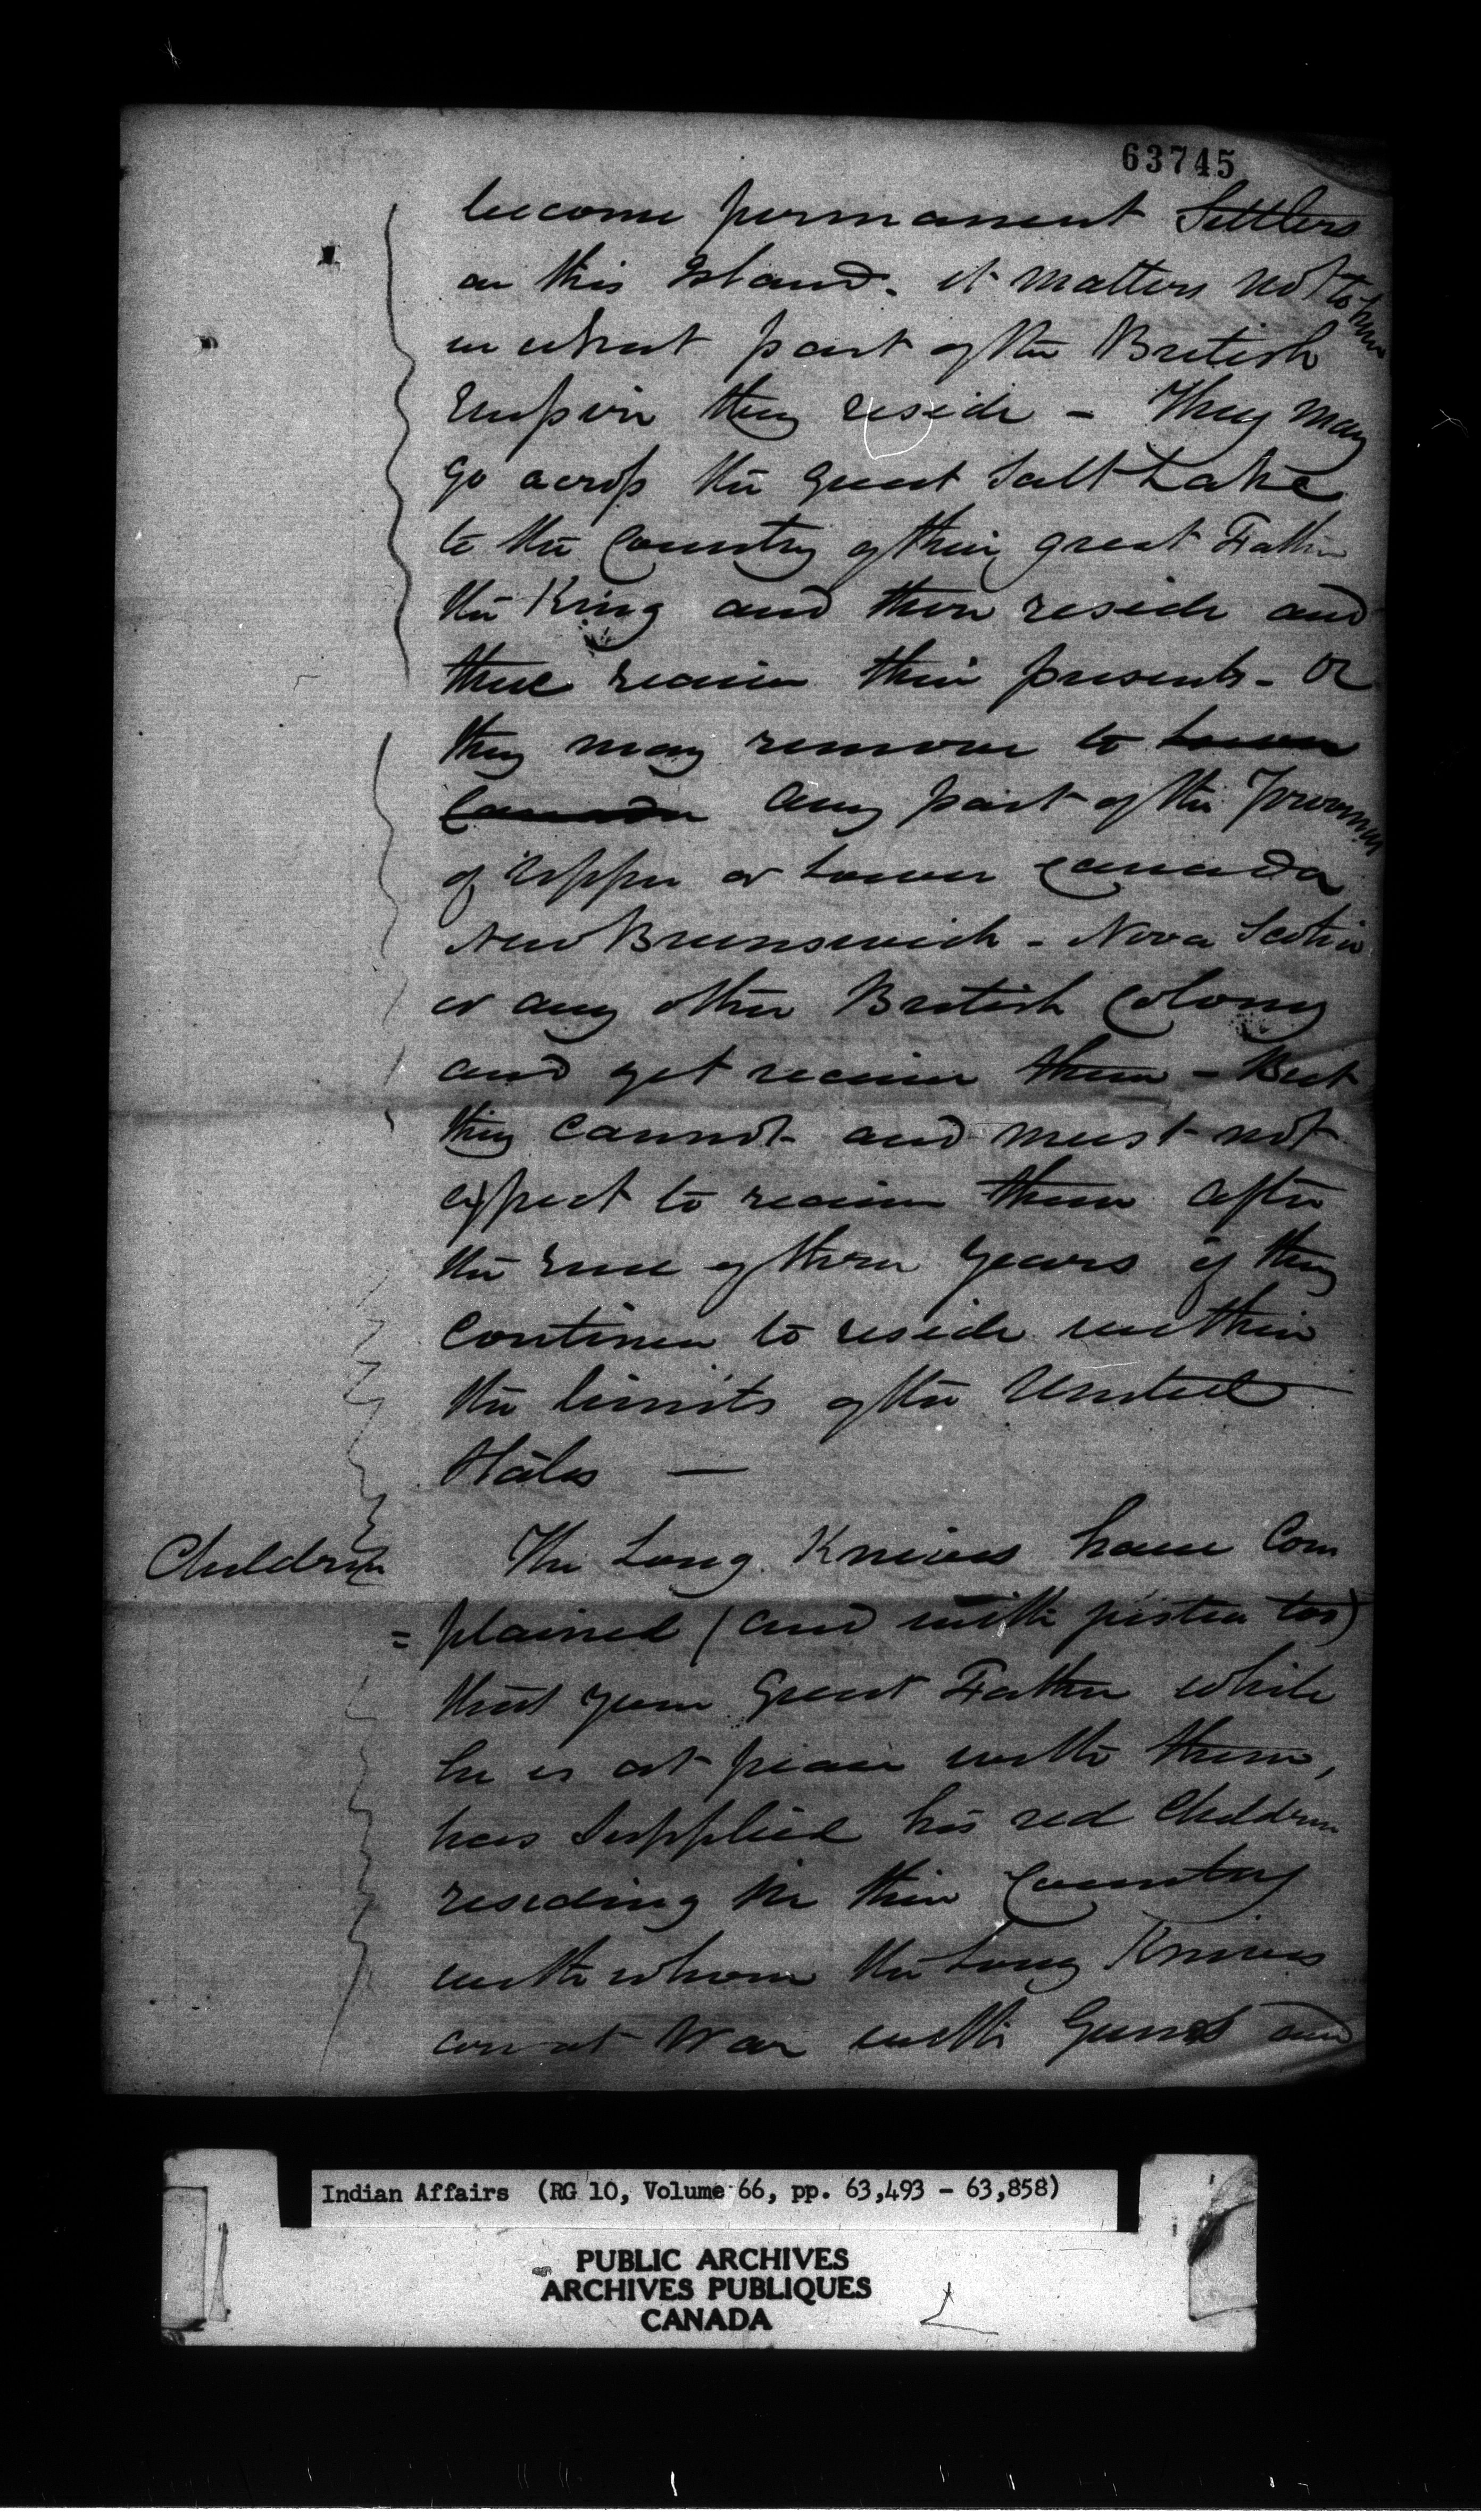 63745
become permanent Settlers
on this Island. it matters not to him
in what part of the British
Empire they reside - They may
go across the great Salt Lake
to the Country of their great Father
the King and there reside and
there receive their presents - or
they may remove to Lower
Canada any part of the Provinces
of Upper or Lower Canada
New Brunswick - Nova Scotia
or any other British Colony
and yet receive them - But
they cannot and must not
expect to receive them after
the end of three years if they
continue to reside within
the limits of the United
States —
Children The Long Knives have Com
= plained (and with justice too)
that your Great Father while
he is at peace with them,
has supplied his red Children
residing in their Country
with whom the Long Knives
are at War with Guns and
Indian Affairs (RG 10, Volume 66, pp. 63,493 - 63,858)
PUBLIC ARCHIVES
ARCHIVES PUBLIQUES
CANADA